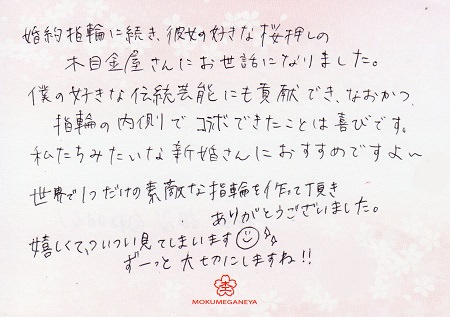 婚約指輪に続き、彼女の好きな桜押しの
木目金屋さんにお世話になりました。
僕の好きな伝統芸能にも貢献でき、なおかつ、
指輪の内側でコラボできたことは喜びです。
私たちみたいな新婚さんにおすすめですよ～
世界で1つだけの素敵な指輪を作って頂き
ありがとうございました。
嬉しくて、ついつい見てしまいます
ずーっと大切にしますね!!
MOKUMEGANEYA